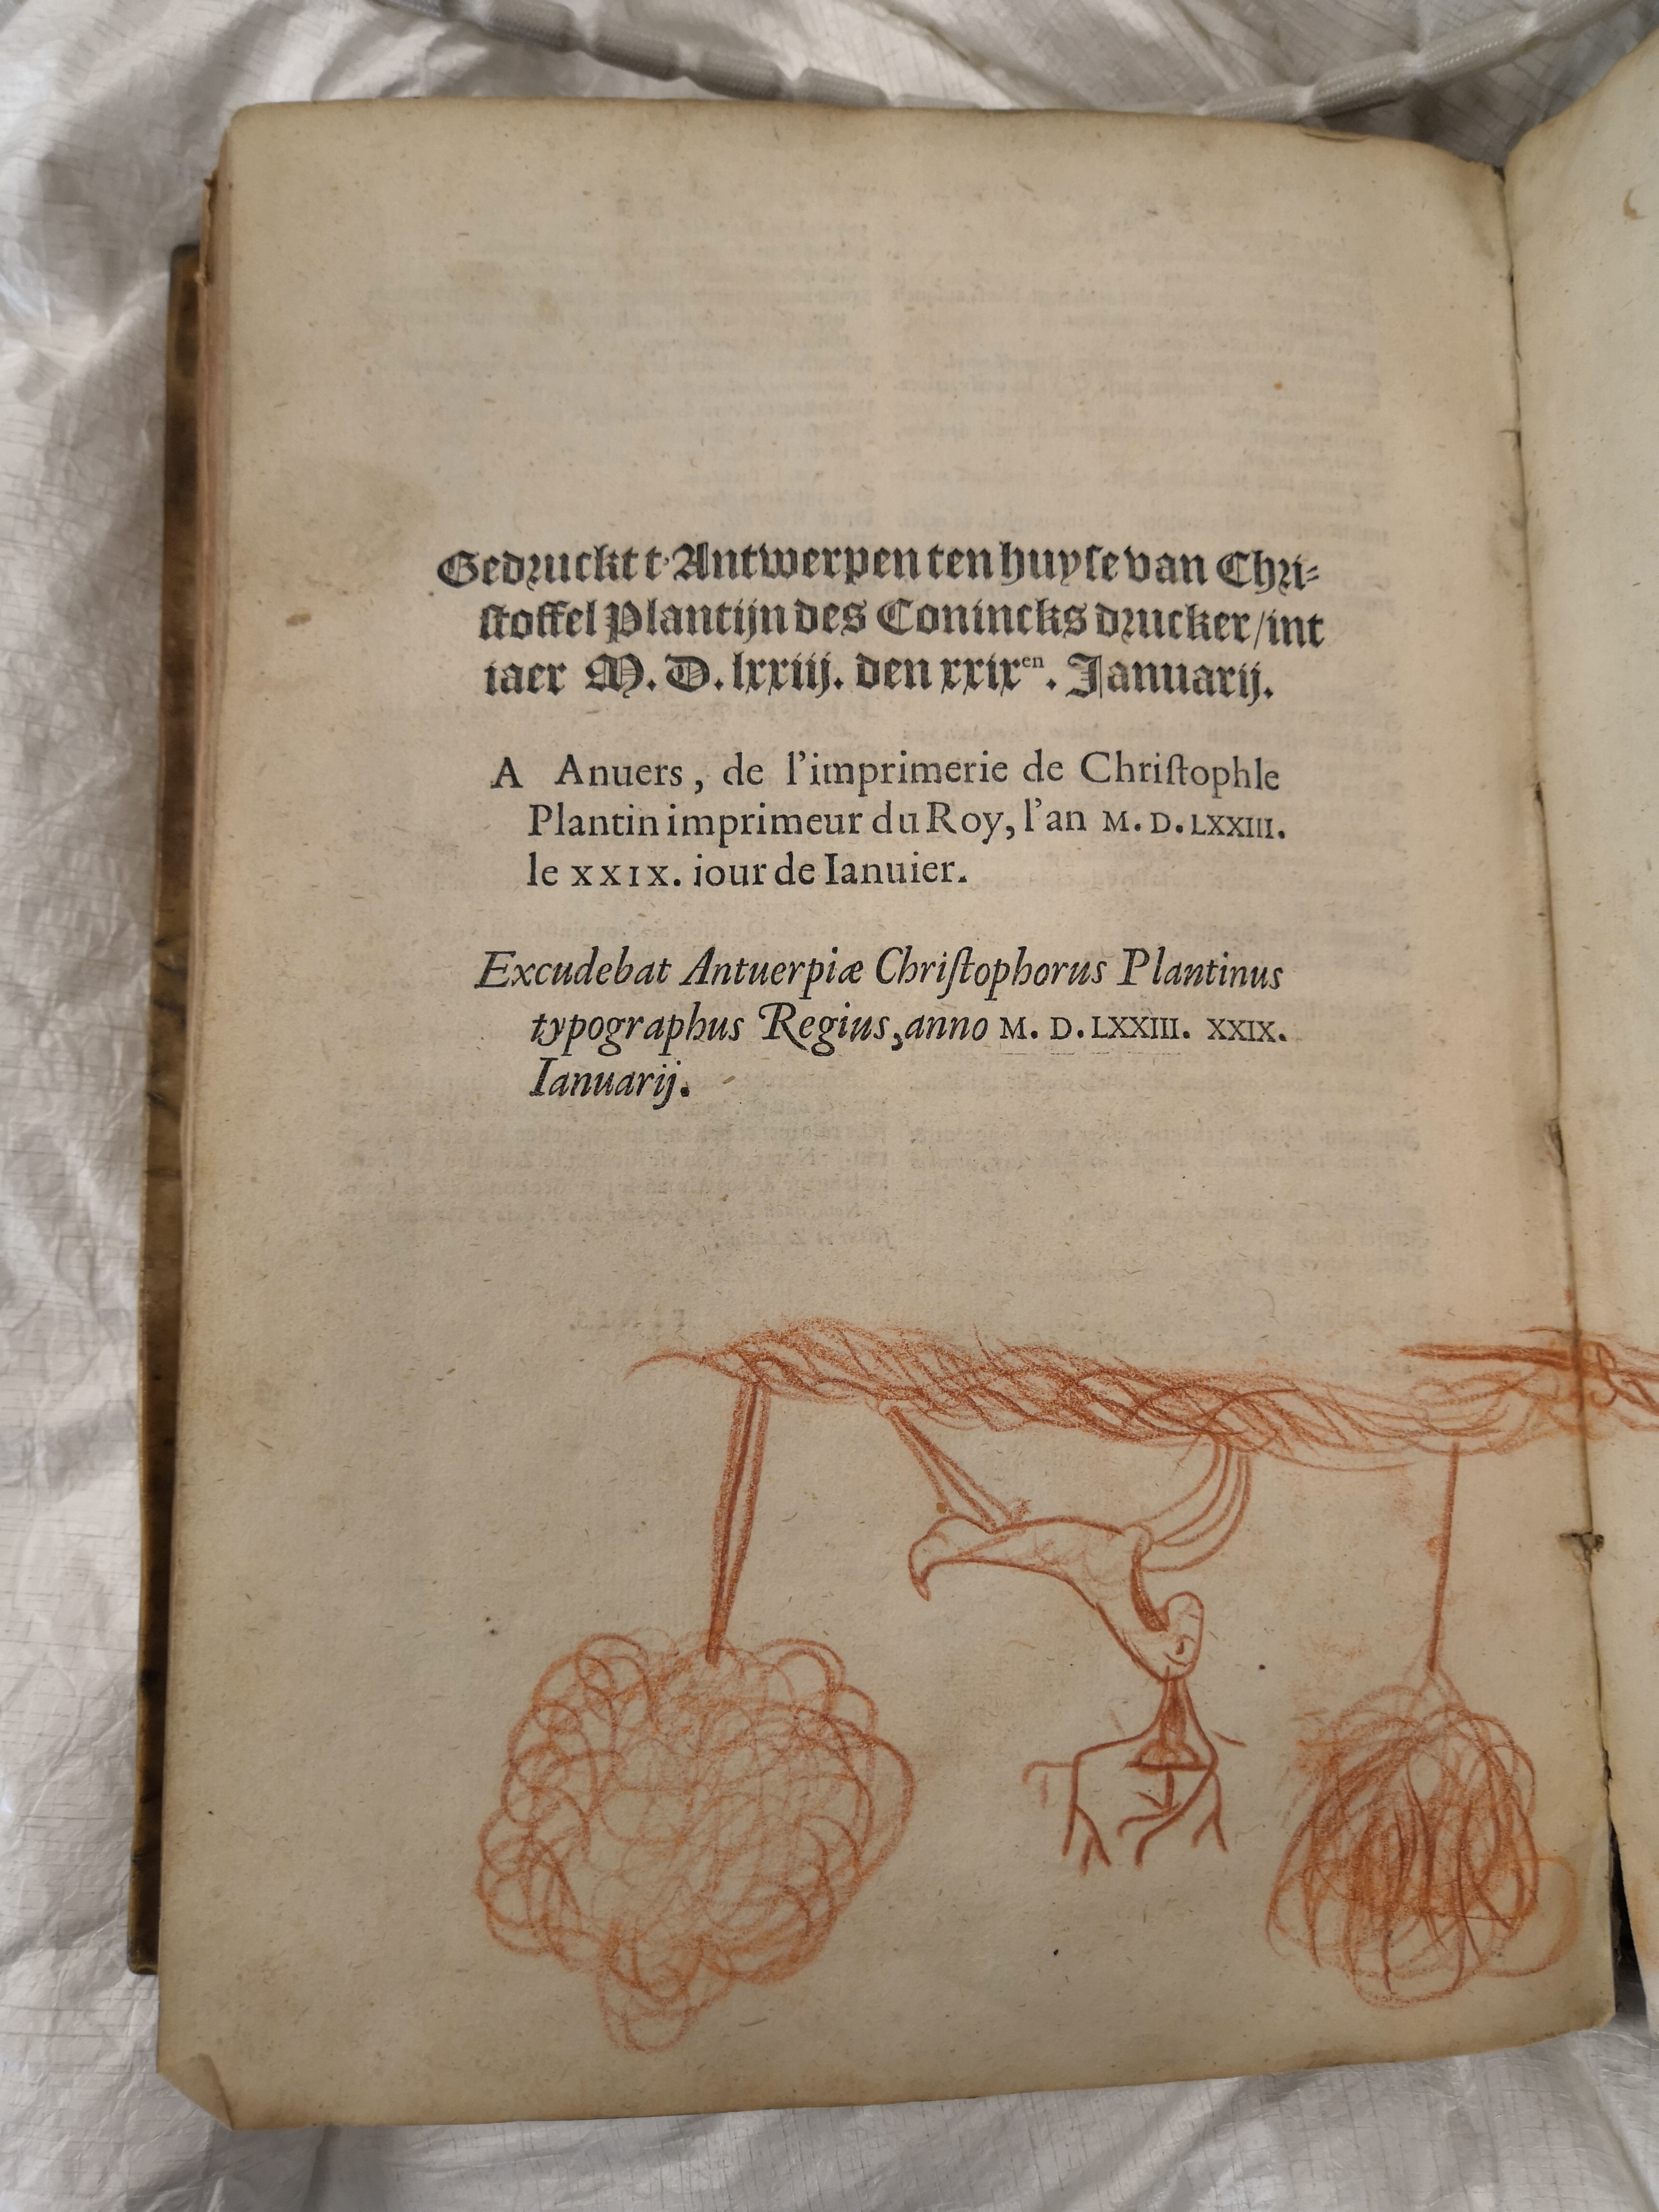 Gedruckt t'Antwerpen ten huyse van Chri-
stoffel Plantijn des Conincks drucker/int
iaer M. D. lxxiij. den xxixen. Januarij.
A Anuers, de l'imprimerie de Chriſtophle
Plantin imprimeur du Roy, l'an M. D. LXXIII.
le XXIX. iour de Ianuier.
Excudebat Antuerpiæ Chriſtophorus Plantinus
typographus Regius, anno M. D. LXXIII. XXIX.
Ianuarij.